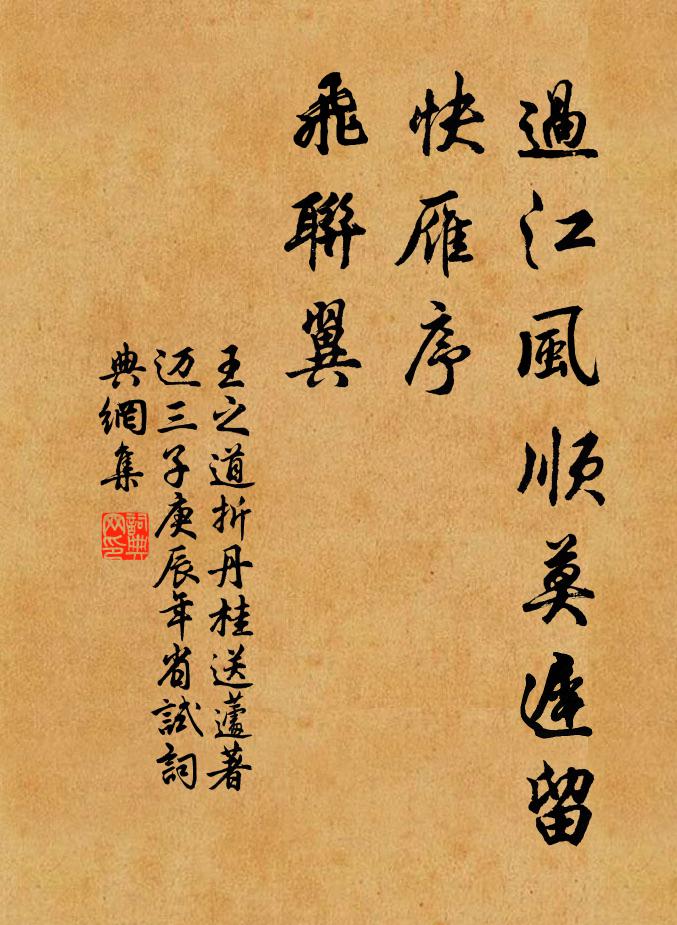 過江風順莫遲留
快雁序
飛聯翼
王之道折丹桂送蘆著
迈三子庚辰年省試詞
典網集
詞典網印